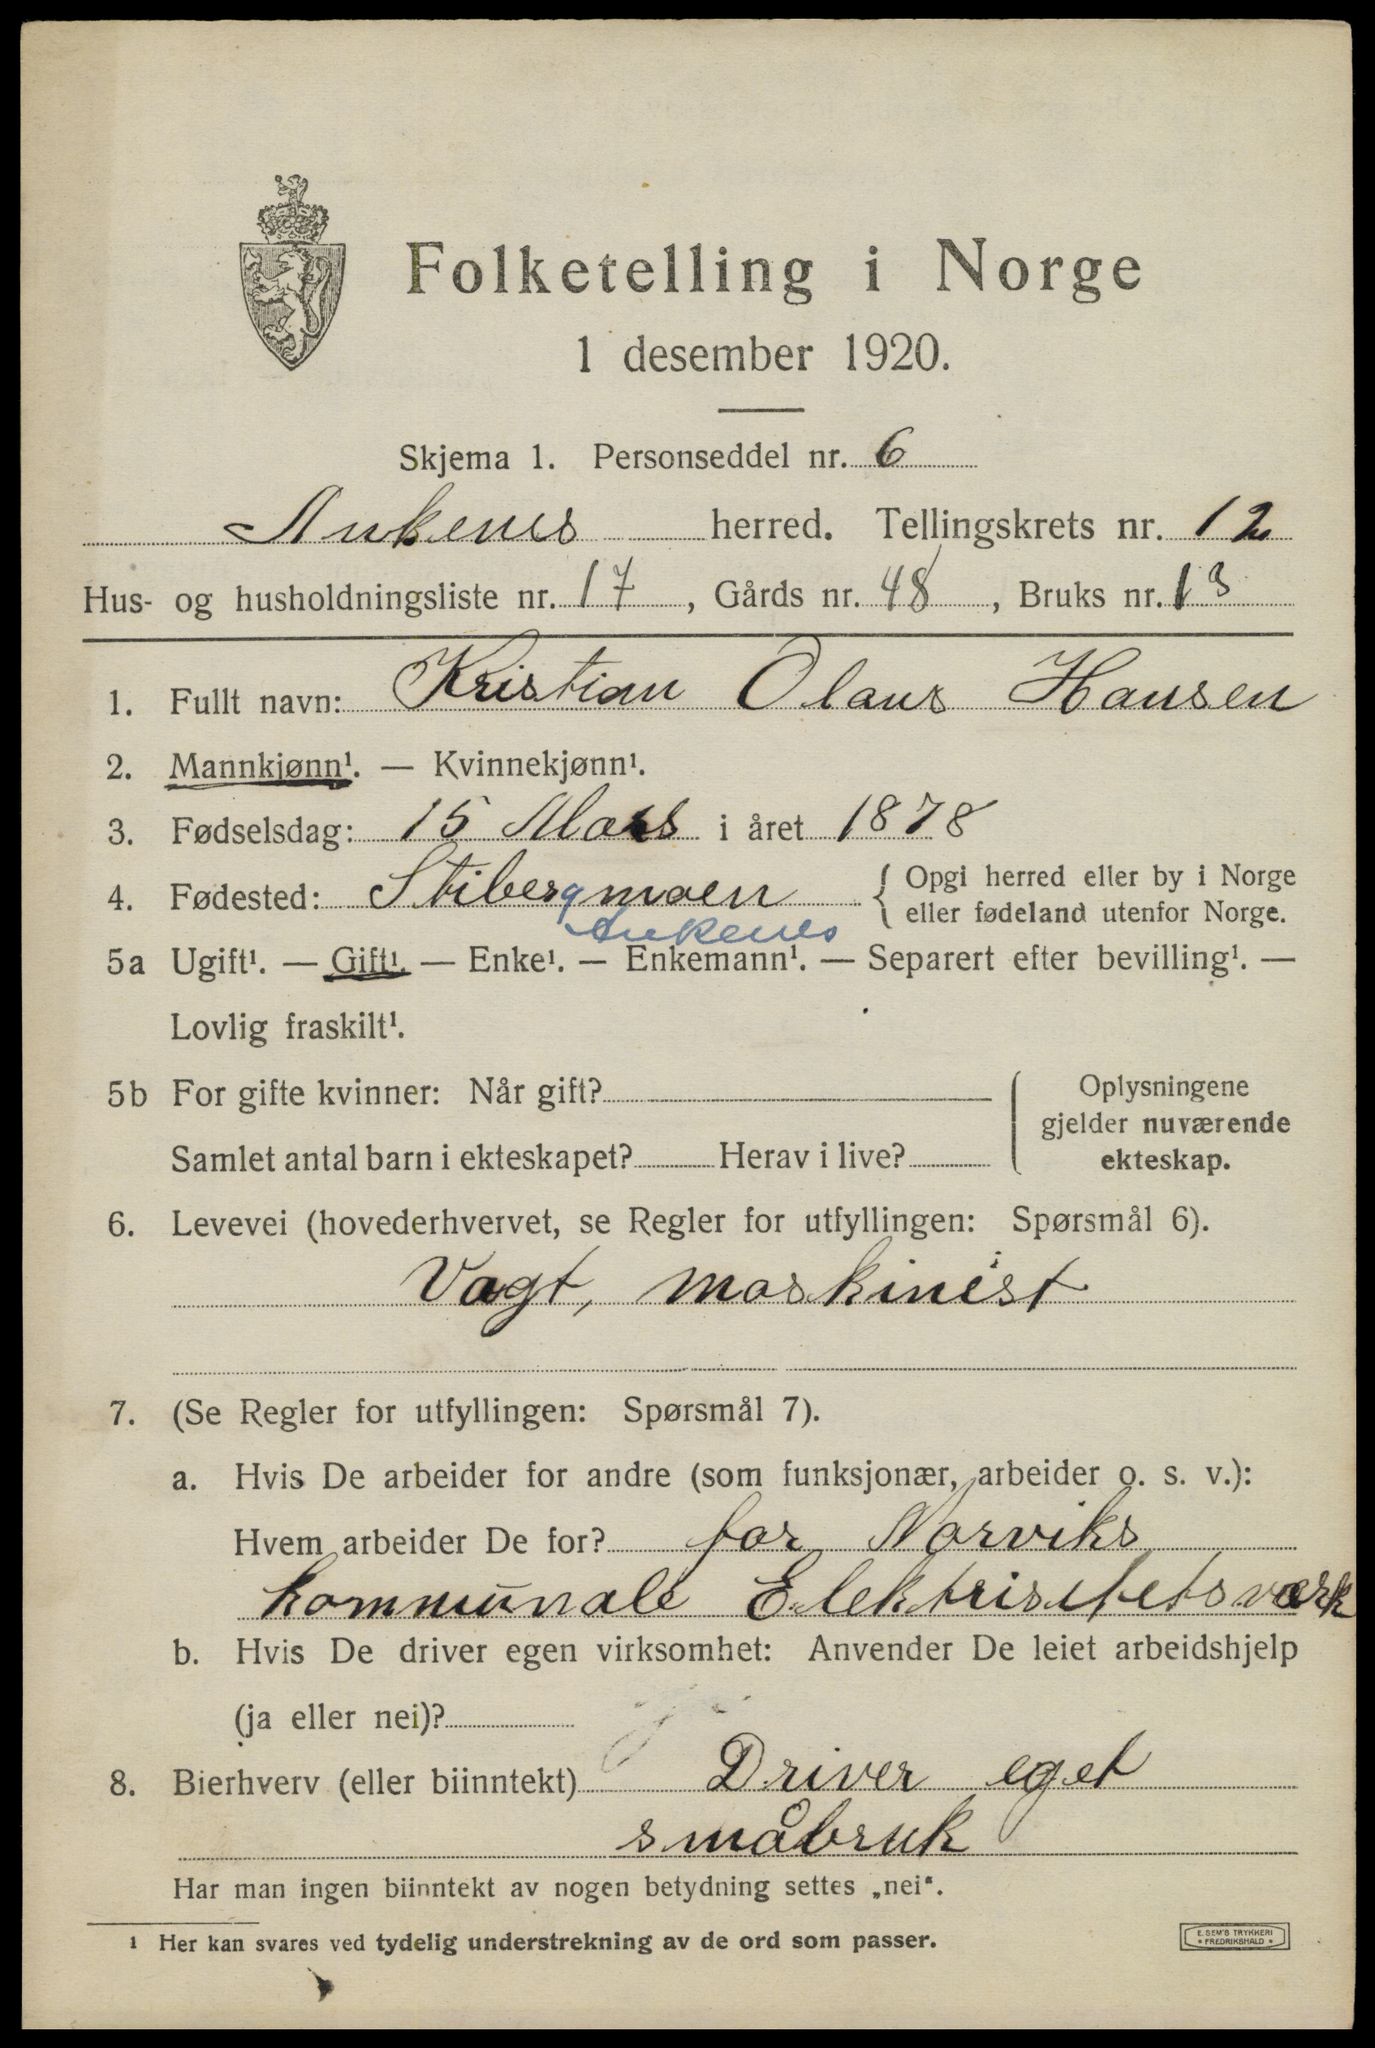 Folketelling i Norge
1 desember 1920.
Skjema 1. Personseddel nr. 6
Ankenes herred. Tellingskrets nr. 12
Hus- og husholdningsliste nr. 17, Gårds nr. 48, Bruks nr. 13
1. Fullt navn: Kristian Olaus Hansen
2. Mannkjønn¹. — Kvinnekjønn¹.
3. Fødselsdag: 15 Mars i året 1878
4. Fødested: Stibergmoen { Opgi herred eller by i Norge
eller fødeland utenfor Norge.
Ankenes
5a Ugift¹. — Gift¹. — Enke¹. — Enkemann¹. — Separert efter bevilling¹. —
Lovlig fraskilt¹.
5b For gifte kvinner: Når gift? Oplysningene
gjelder nuværende
Samlet antal barn i ekteskapet? Herav i live? ekteskap.
6. Levevei (hovederhvervet, se Regler for utfyllingen: Spørsmål 6).
Vagt, maskinist
7. (Se Regler for utfyllingen: Spørsmål 7).
a. Hvis De arbeider for andre (som funksjonær, arbeider o. s. v.):
Hvem arbeider De for? for Narviks
kommunale Elektrisitetsværk
b. Hvis De driver egen virksomhet: Anvender De leiet arbeidshjelp
(ja eller nei)?
8. Bierhverv (eller biinntekt) Driver eget
småbruk
Har man ingen biinntekt av nogen betydning settes „nei“.
¹ Her kan svares ved tydelig understrekning av de ord som passer.
E. SEM'S TRYKKERI
• FREDRIKSHALD •